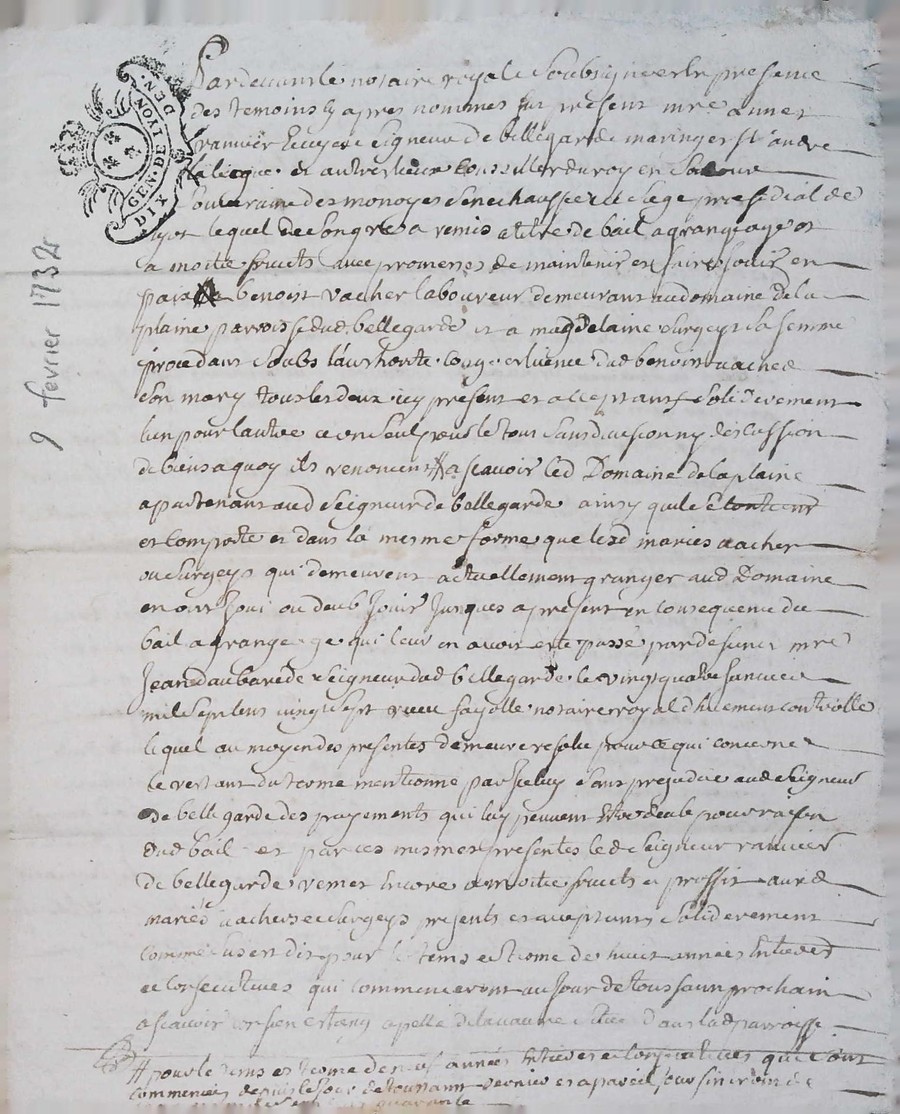 GEN. DE LYON
DIX DEN.
9 fevrier 1732
Pardevant le notaire royal soubsigné et en presence
des temoins cy apres nommés fut present mre
ranvier Ecuyer Seigneur de bellegarde maringes St andre
et autres lieux Conseiller du roy en la Cour
des monoyes Senechaussee et Siege presidial de
lyon lequel de Son gré a remis a titre de bail a grangeage et
a moitié fruicts avec promesses de maintenir et faire jouir en
paix benoist vacher laboureur demeurant au domaine de la
plaine parroisse dud. bellegarde et a magdelaine Surgeys Sa femme
procedant Soubs l'authorité dud benoist vacher
Son mary tous les deux icy present et acceptants Solidairement
lun pour lautre un Seul pour le tout Sans division ny discussion
de biens a quoy ils renoncent # a scavoir led Domaine de la plaine
apartenant aud Seigneur de bellegarde ainsy quil
et Comporte et dans la mesme forme que lesd mariés vacher
Surgeys qui demeurent actuellement granger aud Domaine
en ont joui ou deub jouir jusques a present en consequence du
bail a grangeage qui leur en avoit esté passé par defunct mre
Jean daubarede Seigneur dud bellegarde le vingt quatre janvier
mil Sept Cens vingt Sept receu fayolle notaire royal controlle
lequel au moyen des presentes demeure resolu pour ce qui concerne
le restant du terme mentionné par iceluy Sans prejudice aud Seigneur
de bellegarde des payements qui luy peuvent pour raison
dud bail et par ces mesmes presentes led Seigneur ranvier
de bellegarde remet Encore a moitié fruicts et proffit auxd
mariés vacher et Surgeys presents et acceptants Solidairement
comme dit pour le tems et terme de huit années Entieres
et Consecutives qui commenceront au Jour de toussaint prochain
a scavoir estang apellé de la Située dans lad parroisse
# pour le tems et terme de neuf années Entieres et Consecutives qui Sont
commencées depuis le Jour de toussaint dernier et a pareil jour finiront
quarante